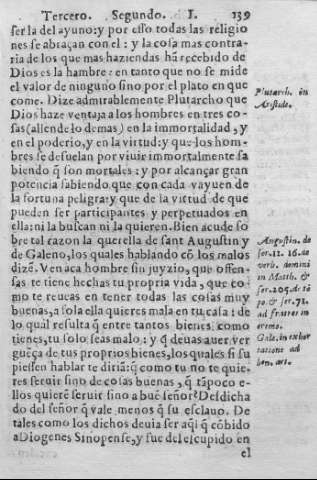 Tercero. Segundo. I. 139
ser la del ayuno: y por esso todas las religio
nes se abraçan con el: y la cosa mas contra-
ria de los que mas haziendas hā recebido de
Dios es la hambre: en tanto que no se mide
el valor de ninguno sino por el plato en que
come. Dize admirablemente Plutarcho que
Dios haze ventaja a los hombres en tres co-
sas (allende lo demas) en la immortalidad, y
en el poderio, y en la virtud: y que los hom-
bres se desuelan por viuir immortalmente sa
biendo q̄ son mortales: y por alcançar gran
potencia sabiendo que con cada vayuen de
la fortuna peligra: y que de la virtud de que
pueden ser participantes y perpetuados en
ella: ni la buscan ni la quieren. Bien acude so
bre tal razon la querella de sant Augustin y
de Galeno, los quales hablando cō los malos
dizē. Ven aca hombre sin juyzio, que offen-
sas te tiene hechas tu propria vida, que co-
mo te reueas en tener todas las cosas muy
buenas, a sola ella quieres mala en tu casa: de
lo qual resulta q̄ entre tantos bienes como
tienes, tu solo seas malo: y q̄ deuas auer ver
guēça de tus proprios bienes, los quales si su
piessen hablar te dirian: q̄ como tu no te quie-
res seruir sino de cosas buenas, q̄ tāpoco e-
llos quierē seruir sino a buē señor? Desdicha
do del señor q̄ vale menos q̄ su esclauo. De
tales como los dichos deuia ser aql̄ q̄ cōbido
a Diogenes Sinopense, y fue del escupido en
el
Plutarch. in
Aristide.
Augustin. de
ser. 12. 16. de
verb. domini
in Matth. &
ser. 205. de tē
po. & ser. 71.
ad fratres in
eremo.
Gale. in exhor
tatione ad
bon. art.